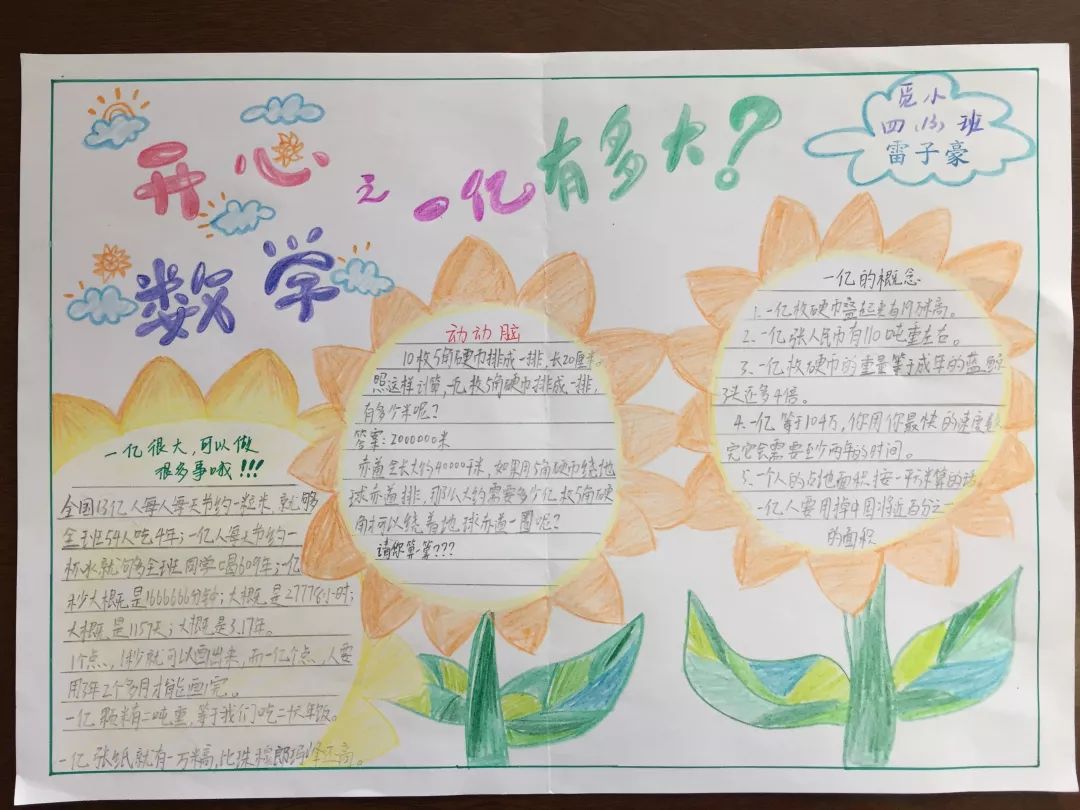 开心
数学
之一亿有多大?
觅小
四(13)班
雷子豪
一亿很大,可以做
很多事哦!!!
全国13亿人每人每天节约一粒米,就够
全班54人吃4年;一亿人每天节约一
杯水就够全班同学喝609年;一亿
秒大概是1666666分钟;大概是27778小时;
大概是1157天;大概是3.17年。
1个点,1秒就可以画出来,而一亿个点,人要
用3年2个多月才能画完。
一亿颗米有二吨重,等于我们吃二十年饭。
一亿张纸就有一万米高,比珠穆朗玛峰还高。
动动脑
10枚5角硬币排成一排,长20厘米。
照这样计算,一亿枚5角硬币排成一排,
有多少米呢?
答案:2000000米
赤道全长大约40000千米,如果用5角硬币绕地
球赤道排,那么大约需要多少亿枚5角硬
币才可以绕着地球赤道一圈呢?
请你算算???
一亿的概念
1、一亿枚硬币叠起来有19万米高。
2、一亿张人民币有110吨重左右。
3、一亿枚硬币的重量等于成年的蓝鲸
3头还多4倍。
4、一亿等于104万,你用你最快的速度数
完它会需要至少两年的时间。
5、一个人的占地面积按一平方米算的话,
一亿人要用掉中国将近百分之一
的面积